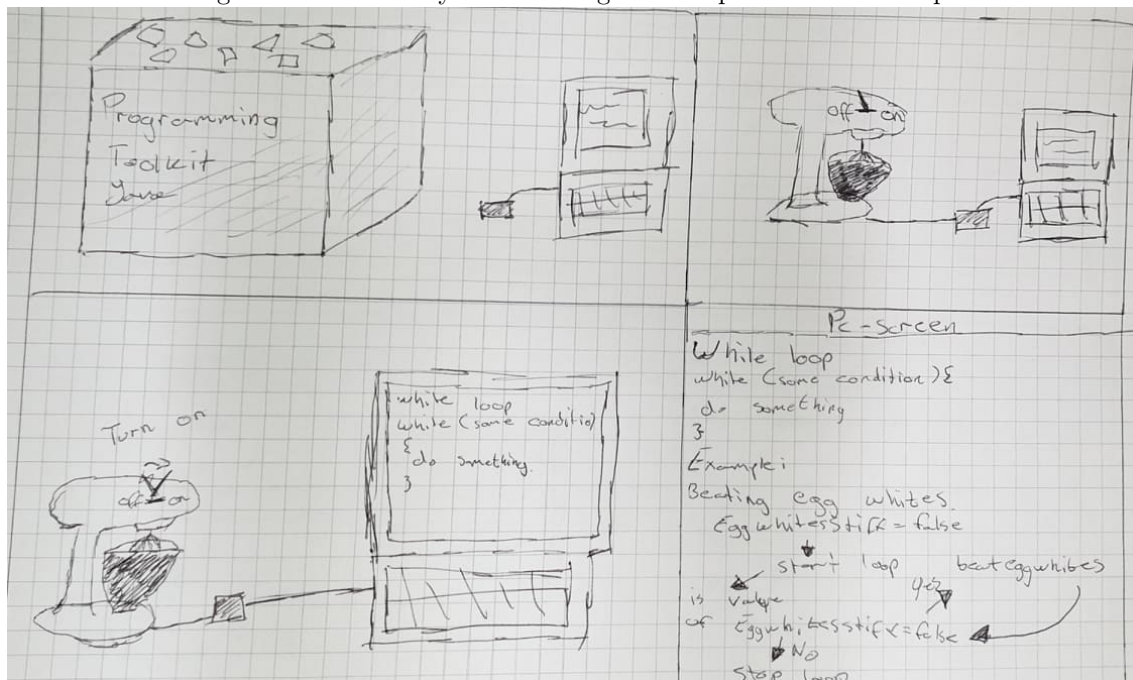 Programming
Toolkit
Java
off on
Turn on
off on
while loop
while (some conditio)
{
do something
}
Pc-screen
While loop
while (some condition) {
do something
}
Example:
Beating egg whites.
EggwhitesStiff = false
start loop
beateggwhites
yes
is value
of Eggwhitesstiff = false
No
stop loop